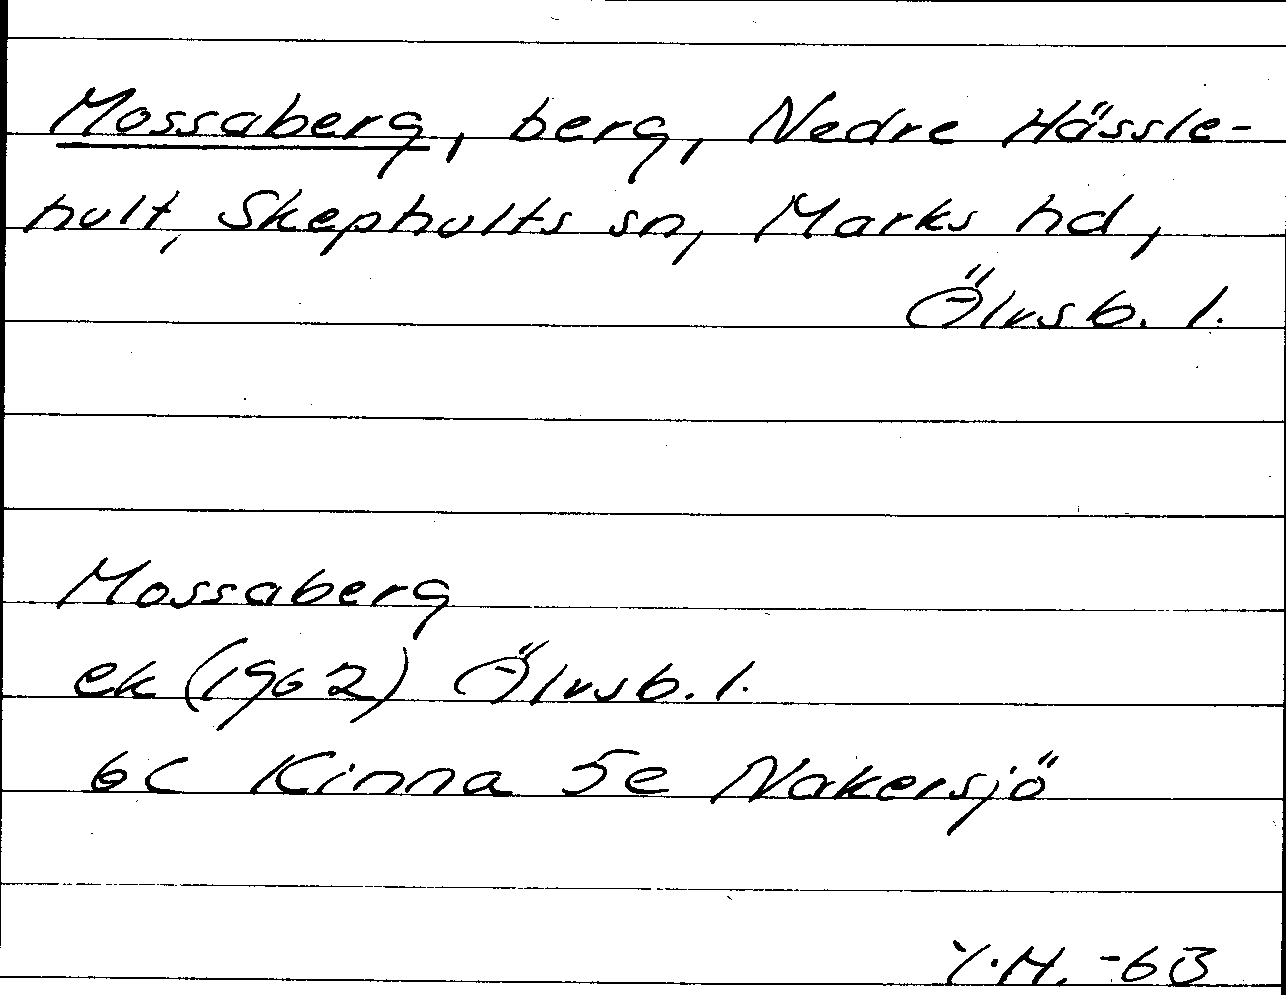 Mossaberg, berg, Nedre Hässle-
hult, Skephults sn, Marks hd,
Älvsb. l.
Mossaberg
ek (1962) Älvsb. l.
6C Kinna 5e Nakersjö
Y.M. -63